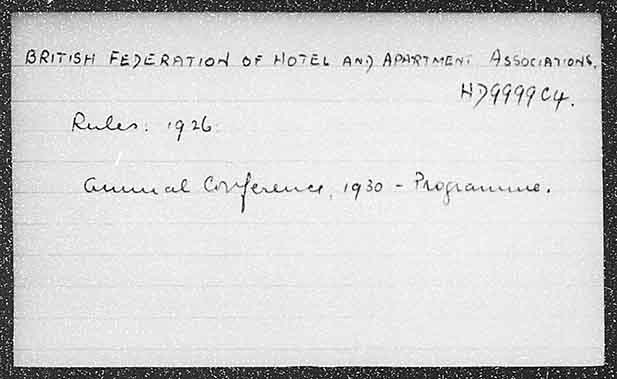 BRITISH FEDERATION OF HOTEL AND APARTMENT ASSOCIATIONS.
HD9999C4.
Rules. 1926.
Annual Conference, 1930 - Programme.